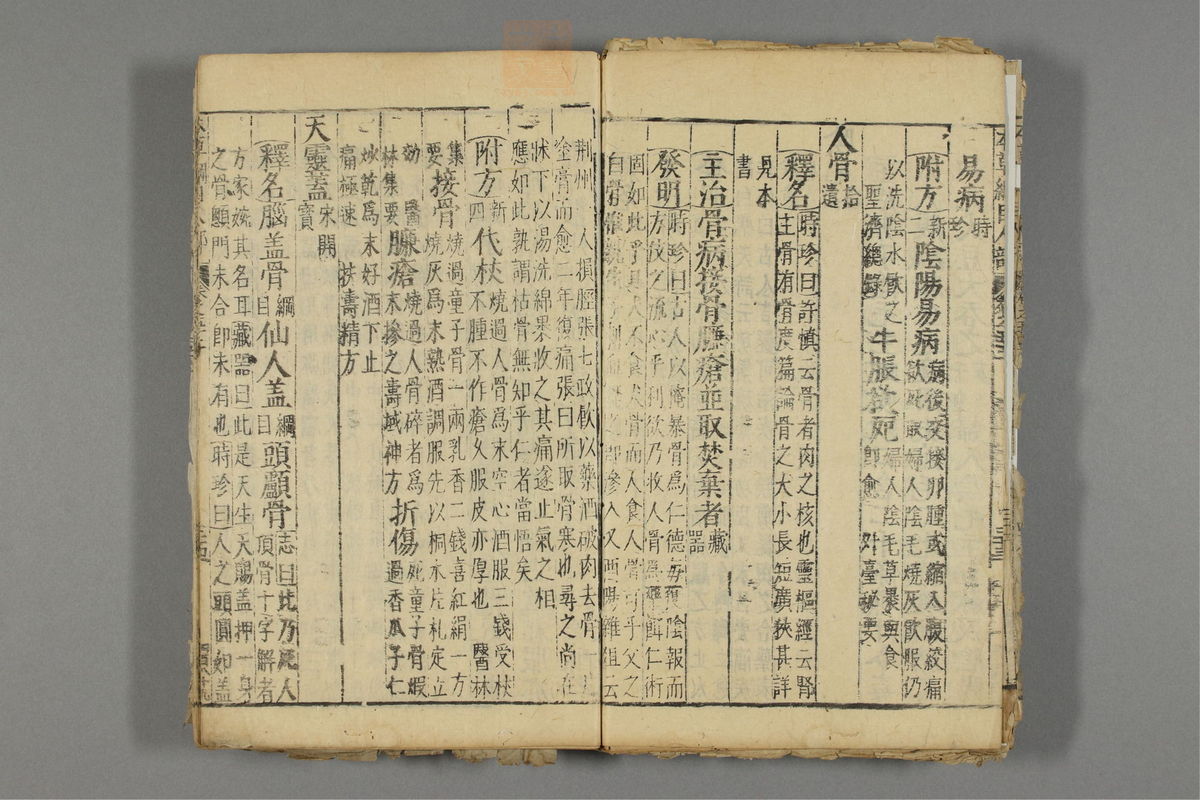 易病時珍
附方新二陰陽易病病後交接卵腫或縮入腹絞痛欲死取婦人陰毛燒灰飲服仍
以洗陰水飲之聖濟總錄牛脹欲死婦人陰毛草裹與食即愈外臺秘要
人骨拾遺
釋名時珍曰許慎云骨者肉之核也靈樞經云腎主骨有骨度篇論骨之大小長短廣狹甚詳
見本書
主治骨病接骨臁瘡並取焚棄者藏器
發明時珍曰古人以掩暴骨為仁德每獲陰報而方技之流心乎利欲乃收人骨為藥餌仁術
固如此乎且犬不食犬骨而人食人骨可乎父之
白骨惟親生子刺血瀝之即滲入又酉陽雜俎云
荆州一人損脛張七政飲以藥酒破肉去骨一片
塗膏而愈二年復痛張曰所取骨寒也尋之尚在
牀下以湯洗綿裹收之其痛遂止氣之相
應如此孰謂枯骨無知乎仁者當悟矣
附方新四代杖燒過人骨為末空心酒服三錢受杖不腫不作瘡久服皮亦厚也醫林
集要接骨燒過童子骨一兩乳香二錢喜紅絹一方燒灰為末熟酒調服先以桐木片札定立
効醫林集要臁瘡燒過人骨碎者為末摻之壽域神方折傷死童子骨煅過香瓜子仁
炒乾為末好酒下止
痛極速扶壽精方
天靈蓋宋開寶
釋名腦蓋骨綱目仙人蓋綱目頭顱骨志曰此乃死人頂骨十字解者
方家婉其名耳藏器曰此是天生天賜蓋押一身
之骨顖門未合即未有也時珍曰人之頭圓如蓋